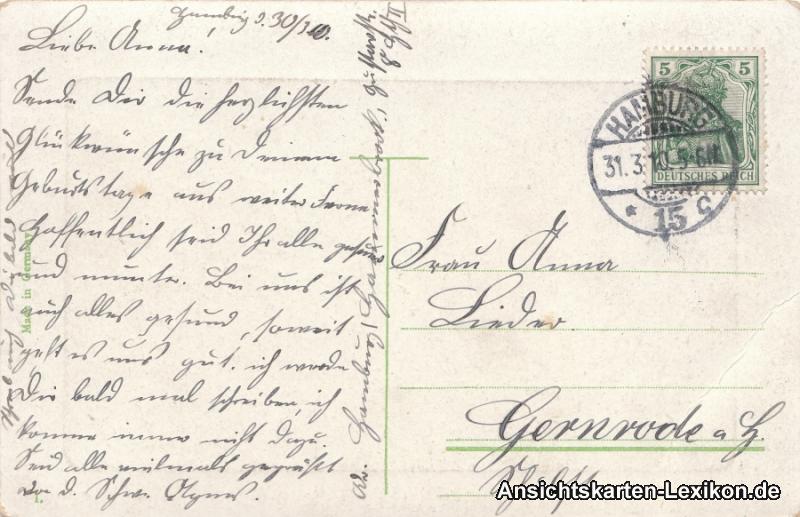 Hamburg d. 30/3 10.
Liebe Anna!
Sende Dir die herzlichsten
Glückwünsche zu Deinem
Geburtstage aus weiter Ferne
Hoffentlich seid Ihr alle gesund
und munter. Bei uns ist
auch alles gesund, soweit
geht es uns gut. ich werde
Dir bald mal schreiben, ich
komme immer nicht dazu.
Seid alle vielmals gegrüßt
von d. Schw. Agnes.
Made in Germany
Hamburg
5 5
DEUTSCHES REICH
HAMBURG
31.3.10. 5-6N
* 15 c
Frau Anna
Lieder
Gernrode a H.
Ansichtskarten-Lexikon.de